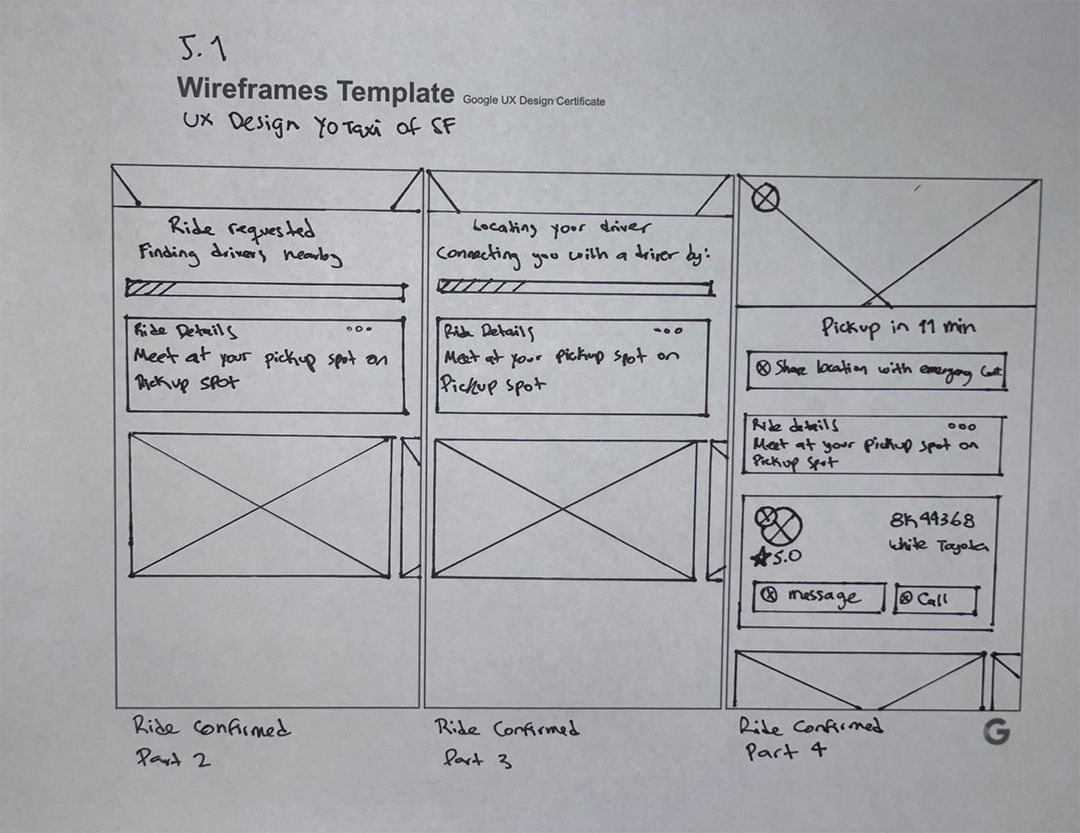 5.1
Wireframes Template Google UX Design Certificate
UX Design YoTaxi of SF
Ride requested
Finding drivers nearby
Ride Details ooo
Meet at your pickup spot on
Pickup spot
Ride Confirmed
Part 2
Locating your driver
Connecting you with a driver by:
Ride Details ooo
Meet at your pickup spot on
Pickup spot
Ride Confirmed
Part 3
Pickup in 11 min
Share location with emergency
Ride details ooo
Meet at your pickup spot on
Pickup spot
★5.0
8h44368
White Toyota
message
Call
Ride Confirmed
Part 4
G